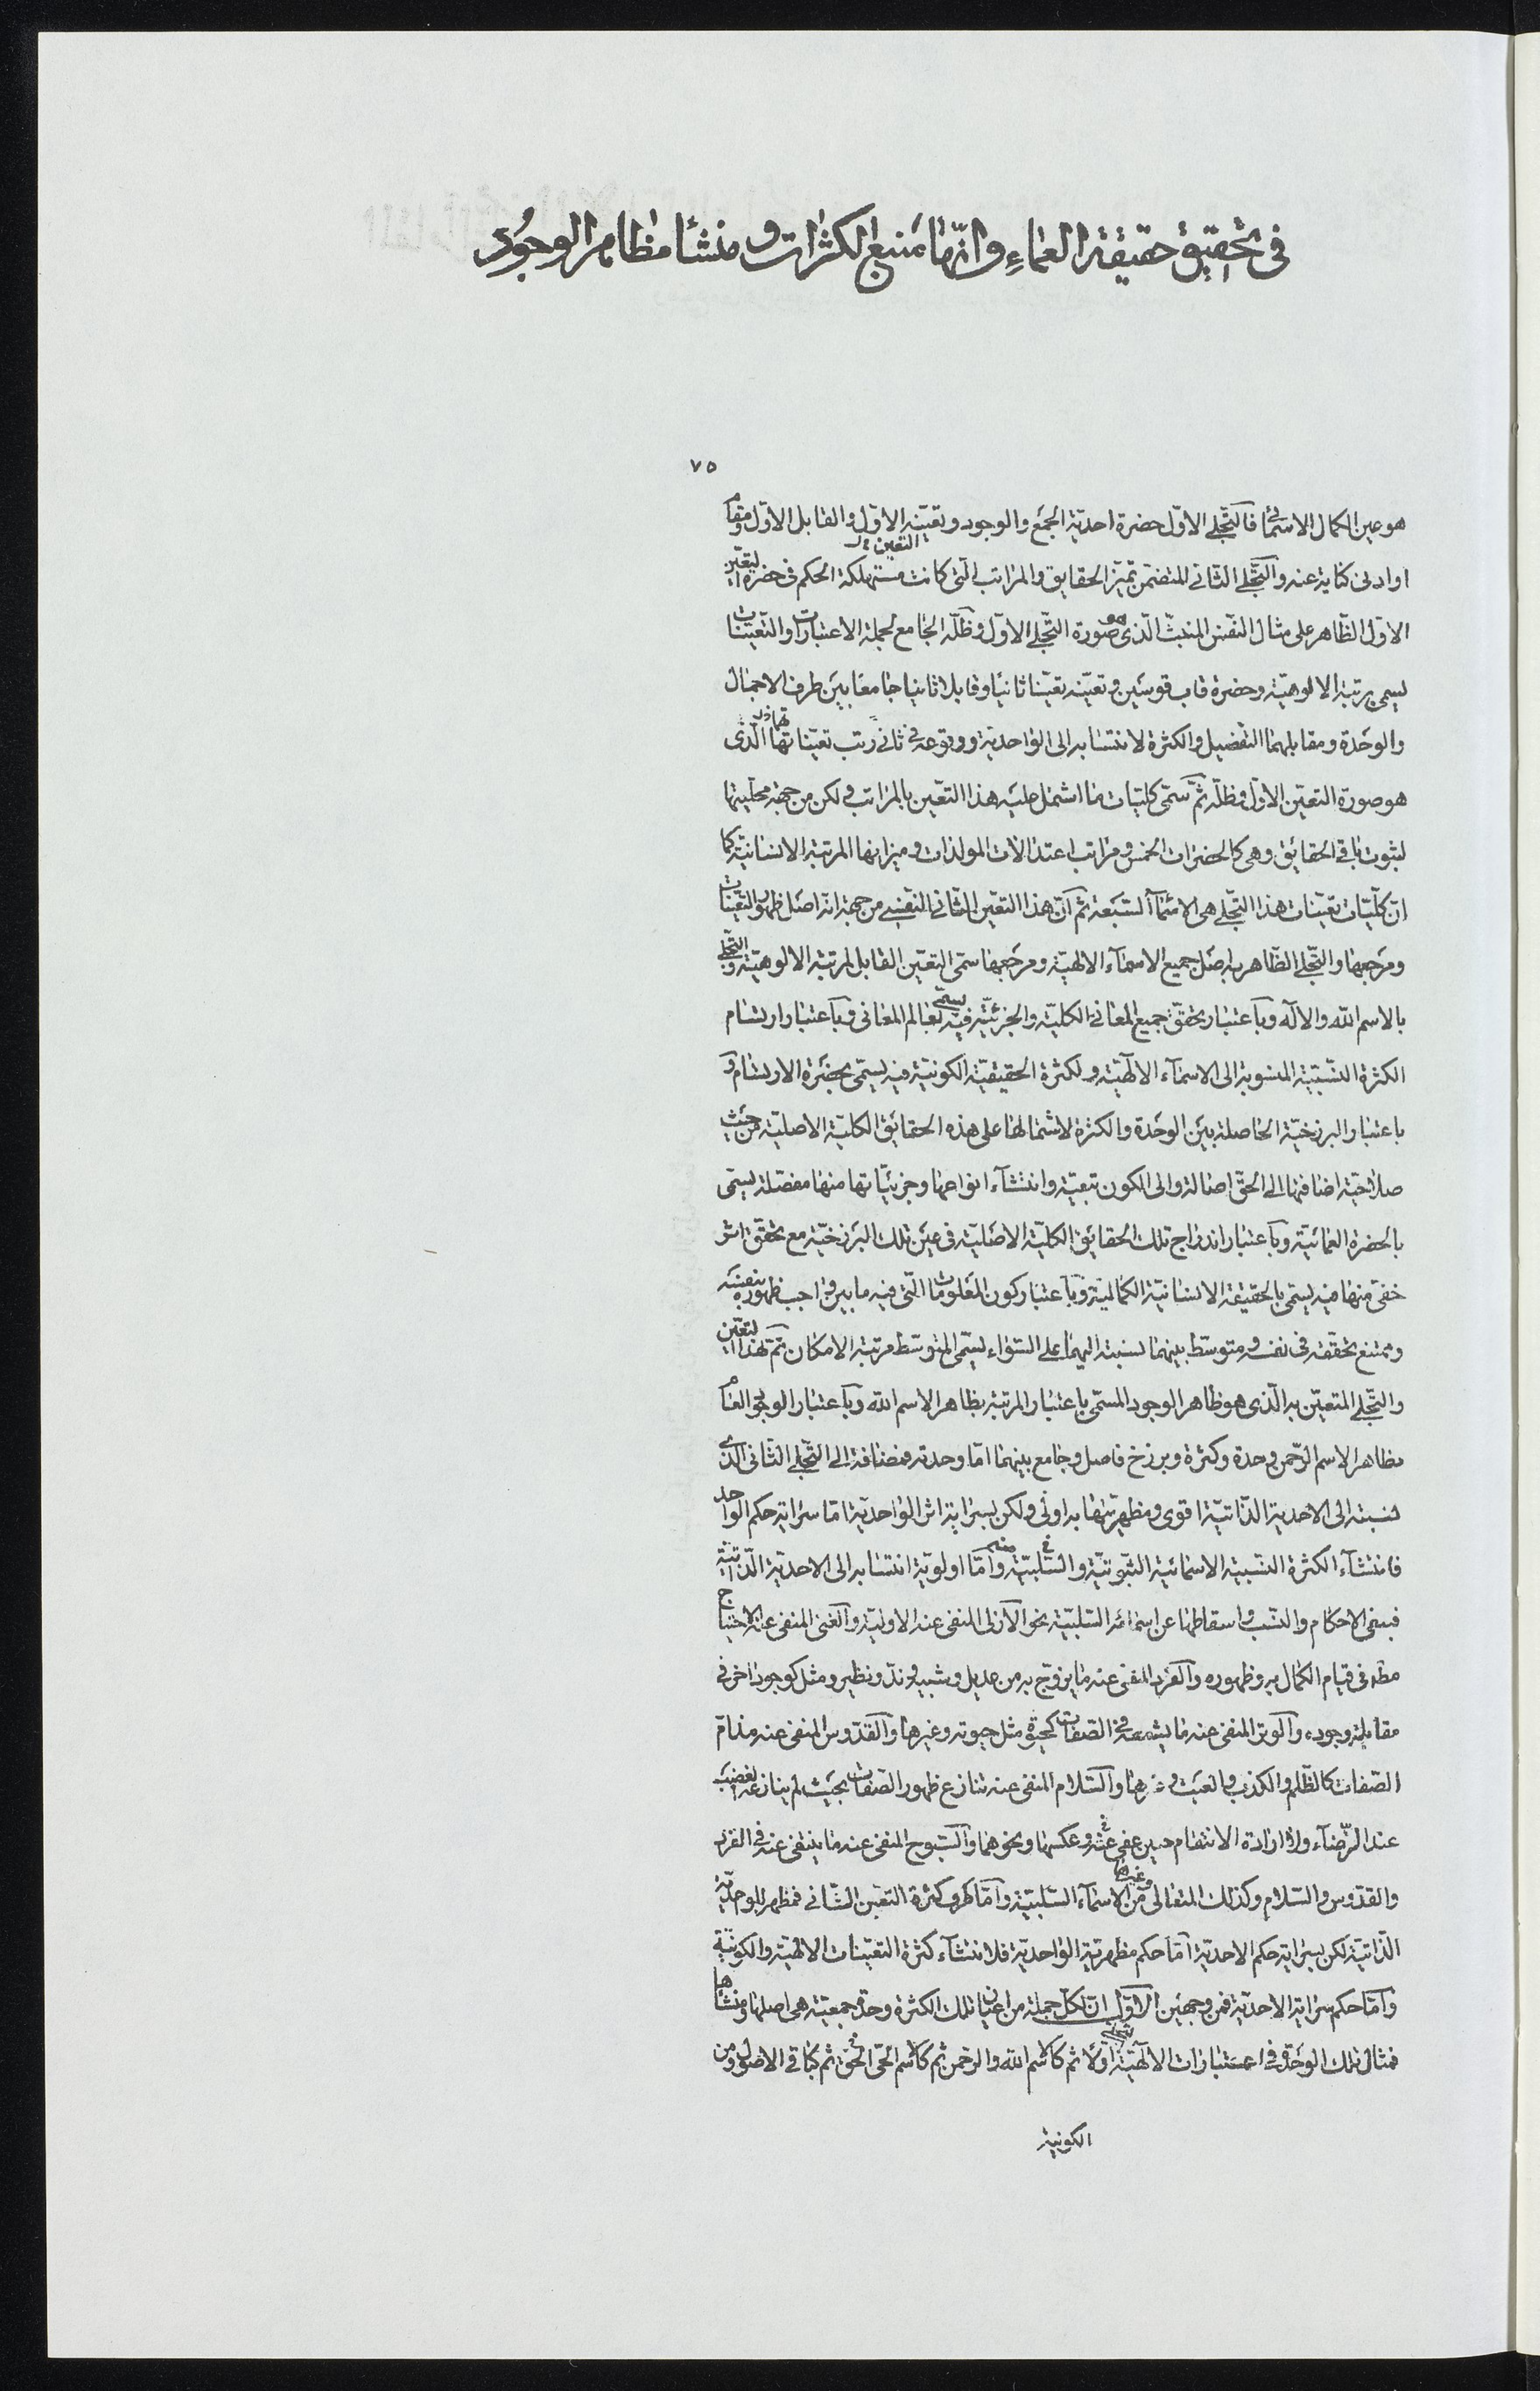 فى تحقيق حقيقة العماء وانّها منبع الكثرات و منشأ مظاهر الوجود
٧٥
هو عين الكمال الاسمائى فالتجلى الاوّل حضرة احدية الجمع والوجود وتعيّنه الاوّل والقابل الاوّل ومقام
او ادنى كناية عنه والتجلى الثانى المتضمن تميّز الحقايق والمراتب التى كانت مستهلكة الحكم فى حضرة التعيّن
الاوّل الظاهر على مثال النفس المنبثّ الذى هو صورة التجلى الاوّل وظلّه الجامع لجملة الاعتبارات والتعينات
يسمى برتبة الالوهيّة وحضرة قاب قوسين وتعيّنه تعيّنا ثانيا وقابلا ثانيا جامعا بين طرف الاجمال
والوحدة ومقابلهما التفضيل والكثرة لانتسابه الى الواحدية ووقوعه فى ثانى رتب تعيّناتها الذى
هو صورة التعيّن الاوّل وظلّه ثمّ سمّى كليّات ما اشتمل عليه هذا التعيّن بالمراتب ولكن من جهة محلّيتها
لثبوت باقى الحقائق وهى كالحضرات الخمس ومراتب اعتدالات المولدات وميزانها المرتبة الانسانيّة كما
انّ كلّيات تعيّنات هذا التجلى هى الاسمآء السّبعة ثم انّ هذا التعيّن الثانى النفسى من جهة انّه اصل ظهور التعيّنات
ومرجعها والتجلى الظاهر به اصل جميع الاسمآء الالهيّة ومرجعها سمّى التعيّن القابل لمرتبة الالوهيّة والتجلى
بالاسم الله والاله وباعتبار تحقق جميع المعانى الكليّة والجزئيّة فيه يسمّى بعالم المعانى وباعتبار ارتسام
الكثرة النسبيّة المنسوبة الى الاسمآء الالٰهيّة ولكثرة الحقيقيّة الكونيّة فيه يسمّى بحضرة الارتسام و
باعتبار البرزخيّة الحاصلة بين الوحدة والكثرة لاشتمالها على هذه الحقائق الكليّة الاصليّة من حيث
صلاحيّة اضافتها الى الحقّ اصالة والى الكون تبعيّة وانتشآء انواعها وجزئيّاتها منها مفصّلة يسمّى
بالحضرة العمائيّة وباعتبار اندراج تلك الحقايق الكليّة الاصليّة فى عين تلك البرزخيّة مع تحقق اثر
خفى منها فيه يسمى بالحقيقة الانسانيّة الكماليّة وباعتبار كون المعلومات التى فيه ما بين واجب ظهوره بنفسه
وممتنع تحققه فى نفسه ومتوسّط بينهما نسبته اليهما على السّواء يسمّى المتوسّط مرتبة الامكان ثمّ لهذا التعيّن
والتجلى المتعيّن به الّذى هو ظاهر الوجود المسمّى باعتبار المرتبة بظاهر الاسم الله وباعتبار الوجود العام
بظاهر الاسم الرّحمن وحدة وكثرة وبرزخ فاصل وجامع بينهما امّا وحدته فمضافة الى التجلى الثانى الّذى
نسبته الى الاحدية الذاتيّة اقوى ومظهريّتها به اولى ولكن بسراية اثر الواحديّة امّا سراية حكم الواحد
فانتشآء الكثرة النسبيّة الاسمائيّة الثبوتيّة والسّلبيّة منه وامّا اولويّة انتسابه الى الاحديّة الذّاتيّة
فبنفى الاحكام والنسب واسقاطها عن اسمائه السّلبيّة نحو الازلى المنفى عنه الاوليّة والغنى المنفى عنه الاحتياج
مط فى قيام الكمال به وظهوره والفرد المنفى عنه ما يزوّج به من عديل وشبيه وندّ ونظير ومثل كوجود اخر فى
مقابلة وجوده والوتر المنفى عنه ما يشفعه فى الصّفات كحيوة مثل حيوته وغيرها والقدّوس المنفى عنه مذامّ
الصّفات كالظّلم والكذب والعبث وغيرها والسّلام المنفى عنه تنازع ظهور الصّفات بحيث لم ينازعه الغضب
عند الرّضآء ولا ارادة الانتقام حين عفى عنه وعكسها ونحوهما والسّبوح المنفى عنه ما ينتفى عنه فى الفرد
والقدّوس والسّلام وكذلك المتعالى وغيرها من الاسمآء السّلبيّة وامّا طرف كثرة التعيّن الثانى فمظهر للواحديّة
الذّاتيّة لكن بسراية حكم الاحديّة امّا حكم مظهريّة الواحديّة فلانتشآء كثرة التعيّنات الالهيّة والكونيّة
وامّا حكم سراية الاحديّة فمن وجهين الاوّل انّ لكلّ جملة من اعيان تلك الكثرة وحدة جمعيّة هى اصلها ومنشأها
فمثال تلك الوحدة فى اعتبارات الالٰهيّة اوّلا ثم كاسم الله والرحمن ثم كاسم الحىّ الحق ثم كباقى الاصول ومن
الكونية